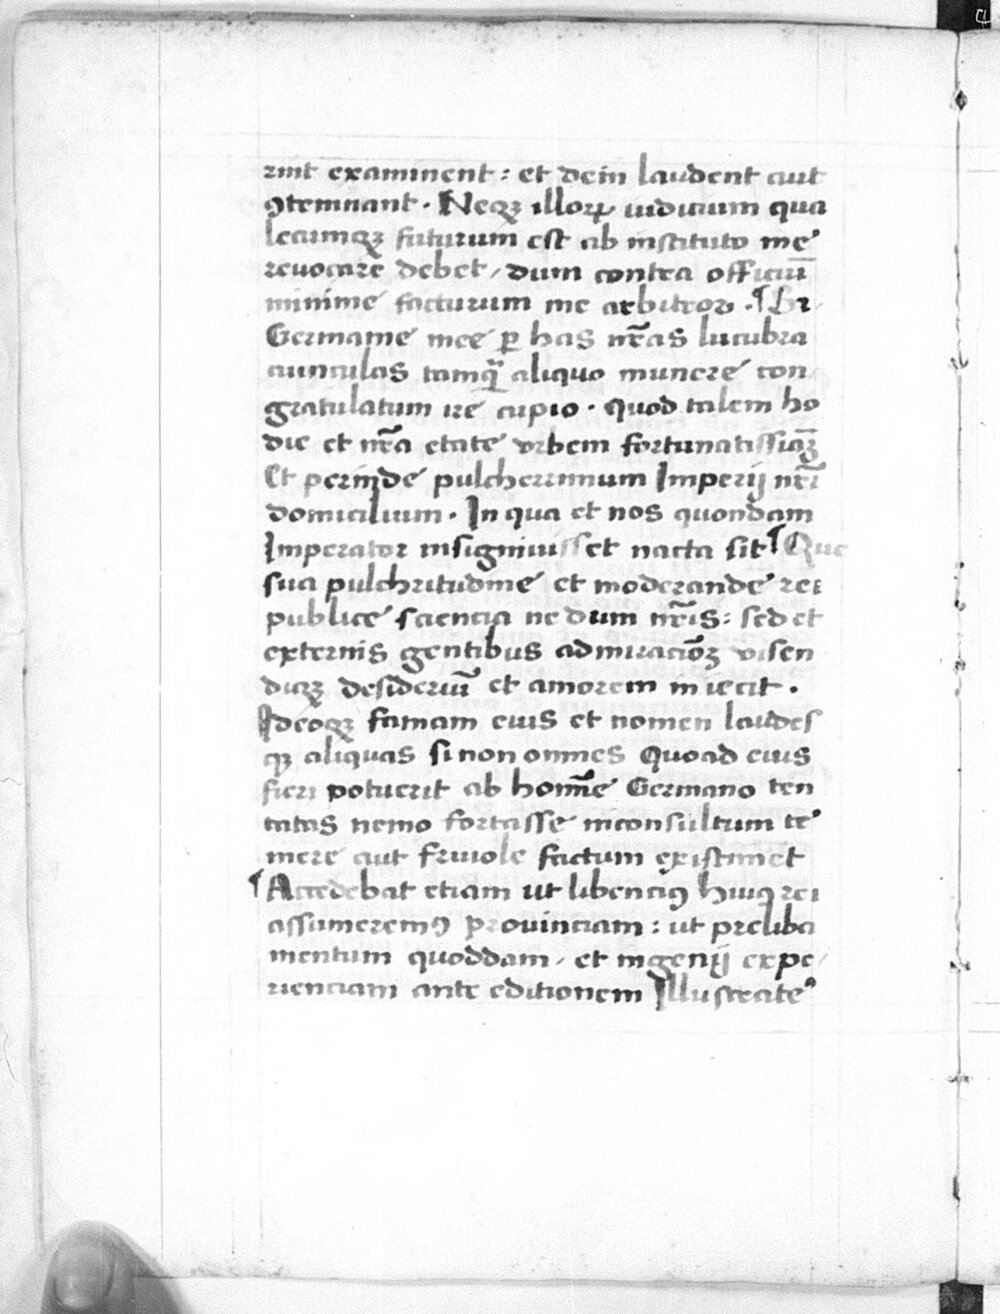 rint examinent : et dein laudent aut
ꝯtemnant . Neqꝫ illoꝝ iudicium qua
lecumqꝫ futurum est ab instituto me
reuocare debet / dum contra officiū
minime facturum me arbitror . ¶
Germanie mee ꝑ has nr̄as lucubra
ciunculas tamq̄ aliquo munere con
gratulatum ire cupio . Quod talem ho
die et nr̄a etate vrbem fortunatissiā
Et perinde pulcherrimum Imperij nr̄i
domicilium . In qua et nos quondam
Imperator insigniuisset nacta sit ¶ Que
sua pulchritudine et moderande rei
publice sciencia ne dum nr̄is : sed et
externis gentibus admiracōꝫ visen
diqꝫ desideriū et amorem iniecit .
Ideoqꝫ famam eius et nomen laudes
qꝫ aliquas si non omnes Quoad eius
fieri potuerit ab homīe Germano ten
tatas nemo fortasse inconsultum te
mere aut friuole factum existimet
¶ Accedebat etiam ut libenciꝰ huiꝰ rei
assumeremꝰ prouinciam : ut preliba
mentum quoddam / et ingenij expe
rienciam ante editionem Illustrate